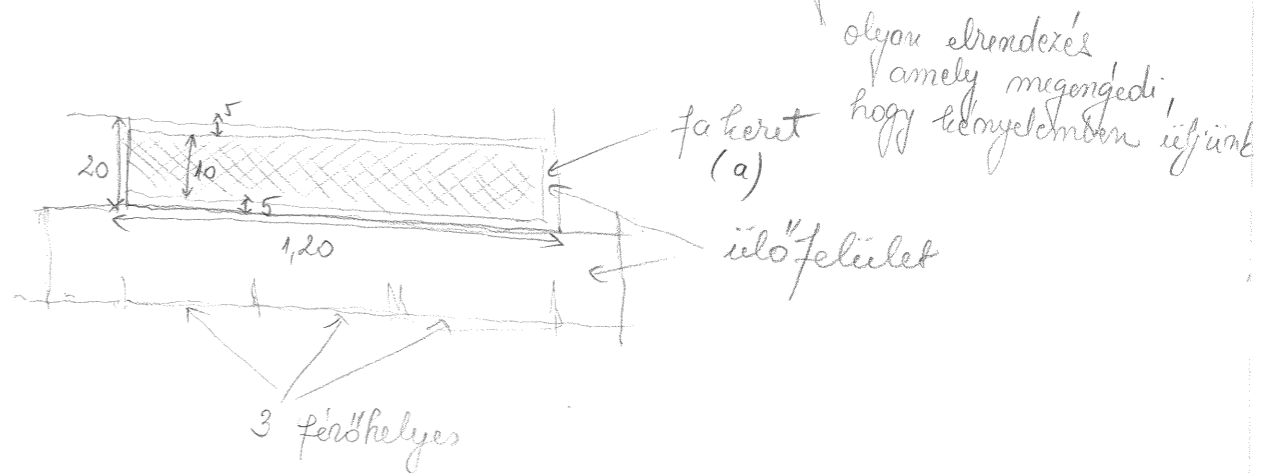 olyan elrendezés
amely megengedi,
hogy kényelemben üljünk
fa keret
(a)
5
20
10
5
1,20
ülőfelület
3 férőhelyes